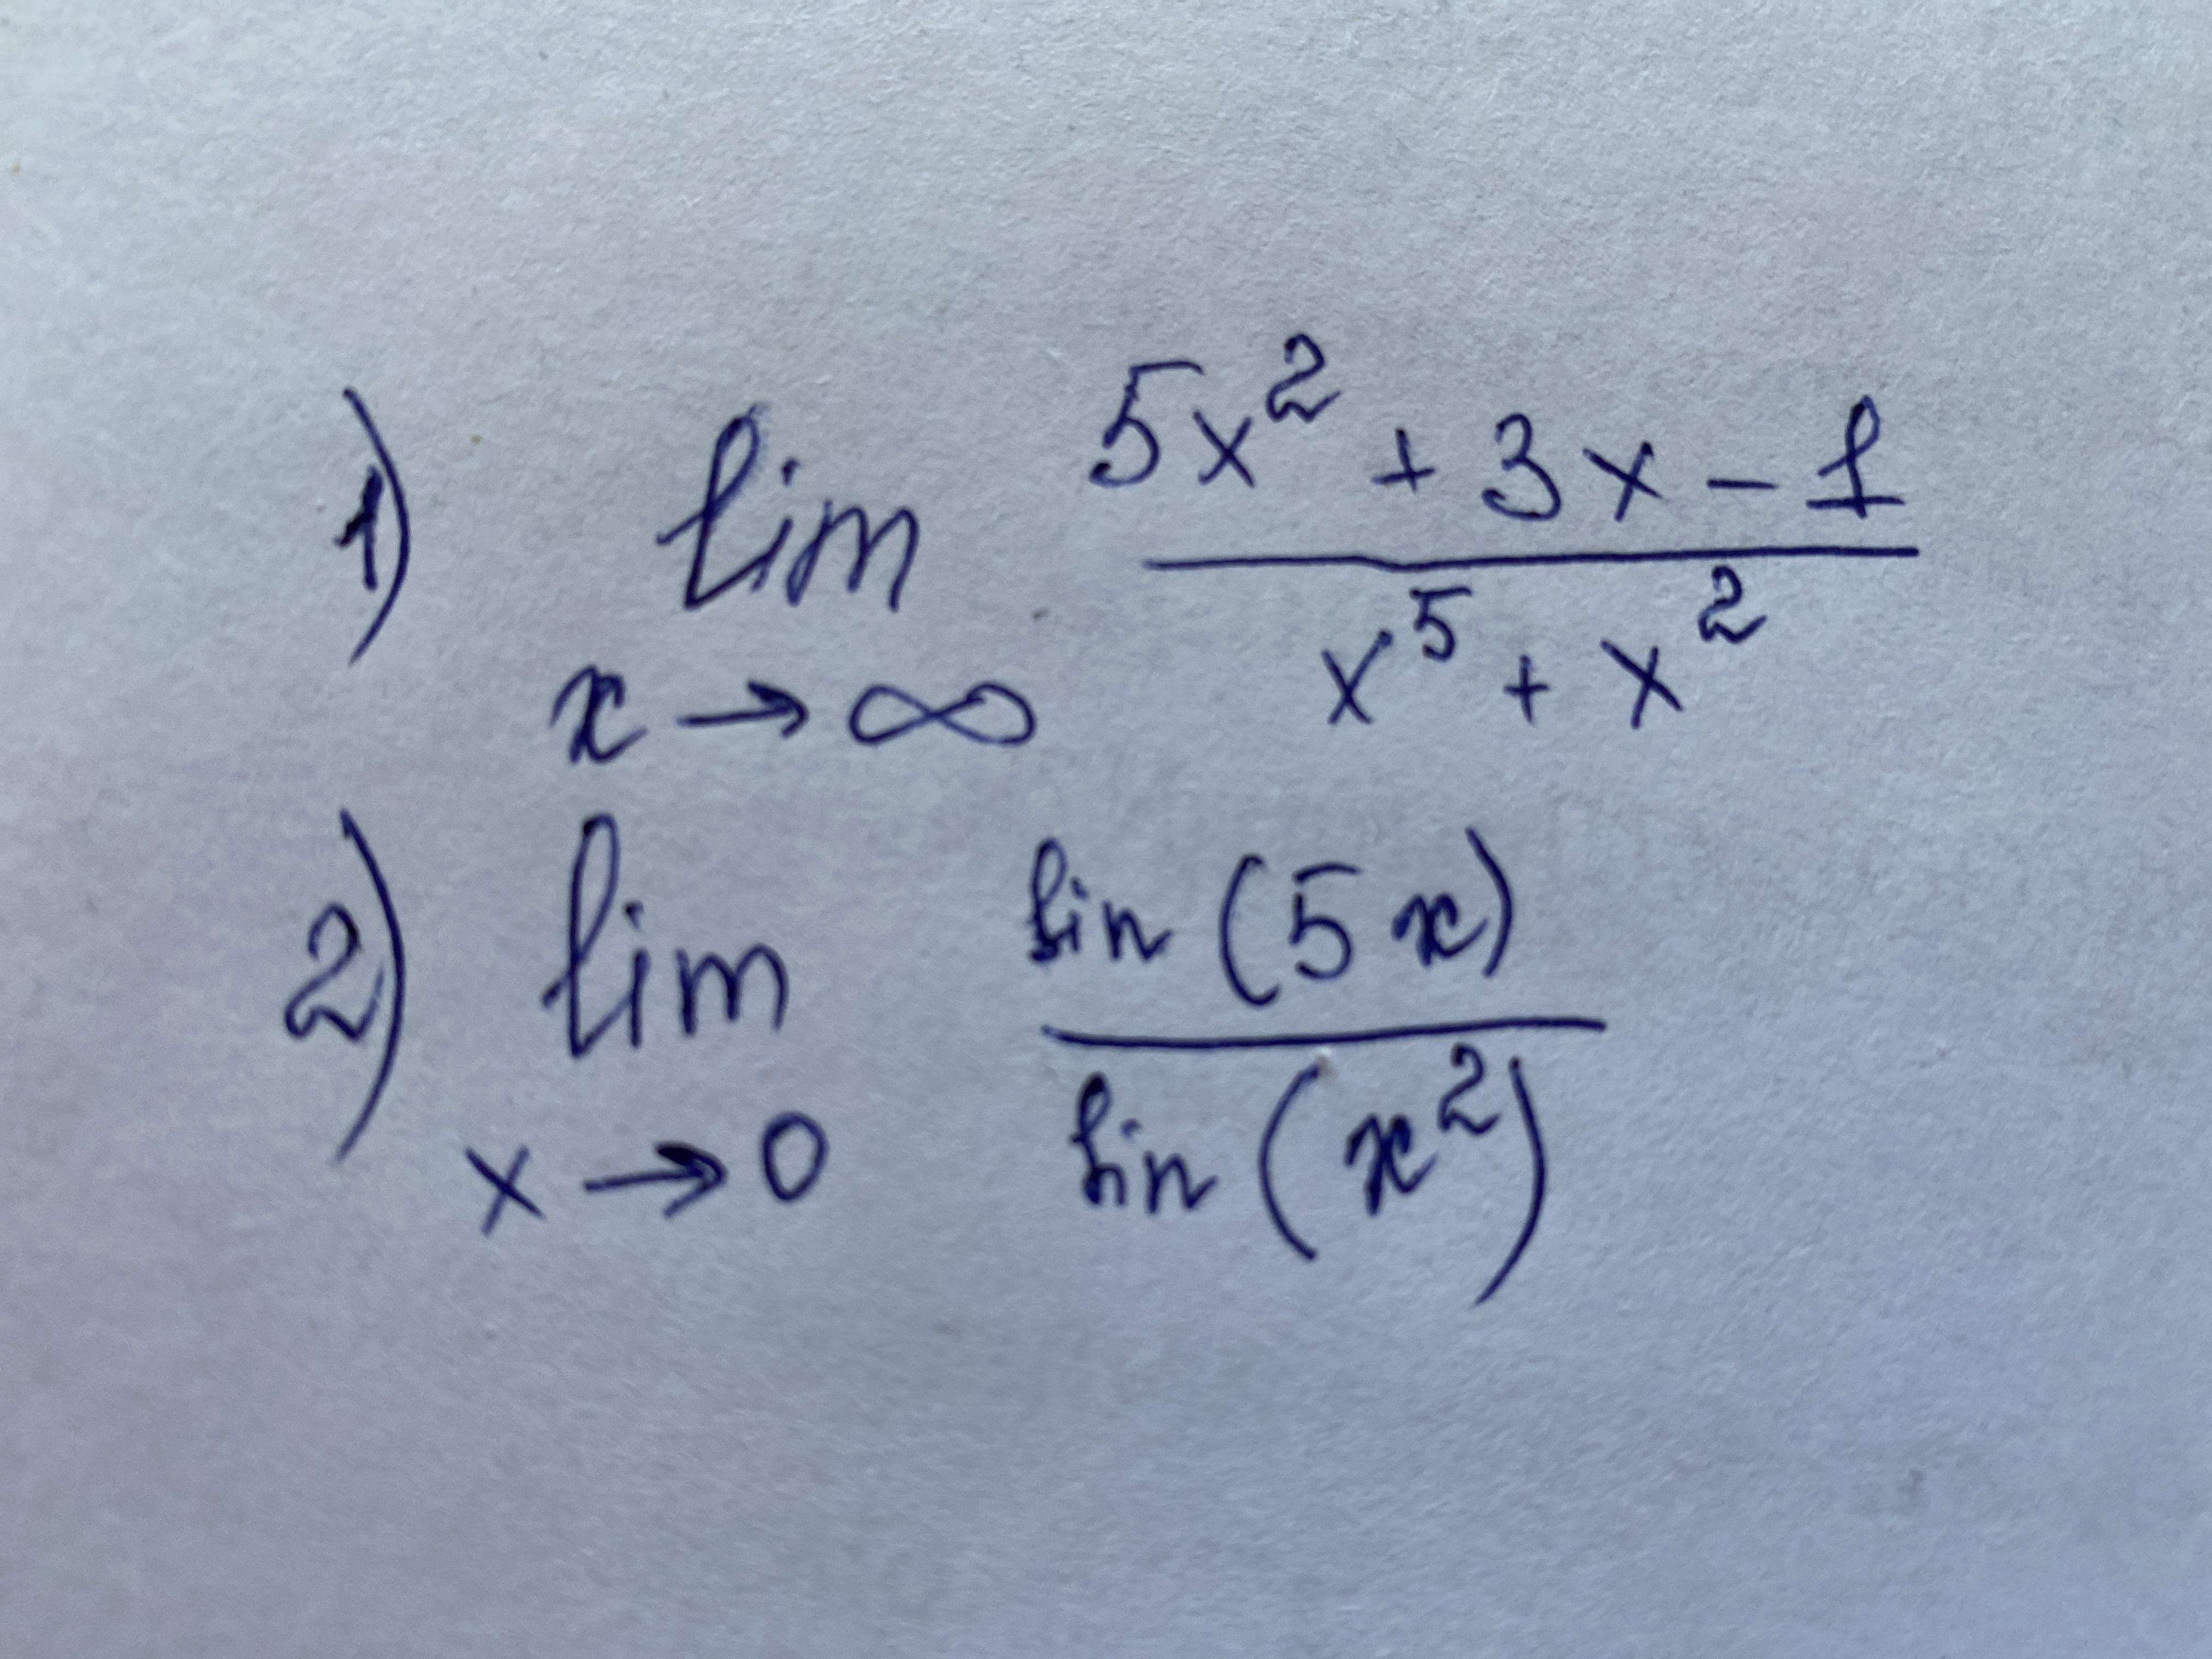 1) lim x→∞ (5x² + 3x - 1)/(x⁵ + x²)
2) lim x→0 sin(5x)/sin(x²)